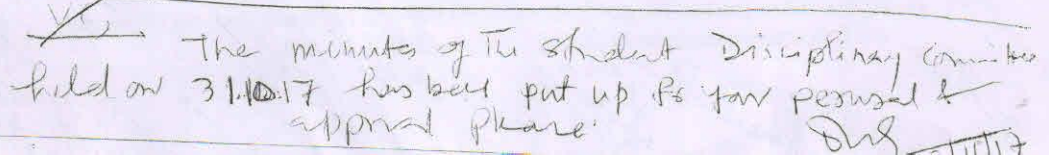 VC,
The minutes of The Student Disciplinary Committee
held on 31.10.17 has been put up for your perusal &
approval please.